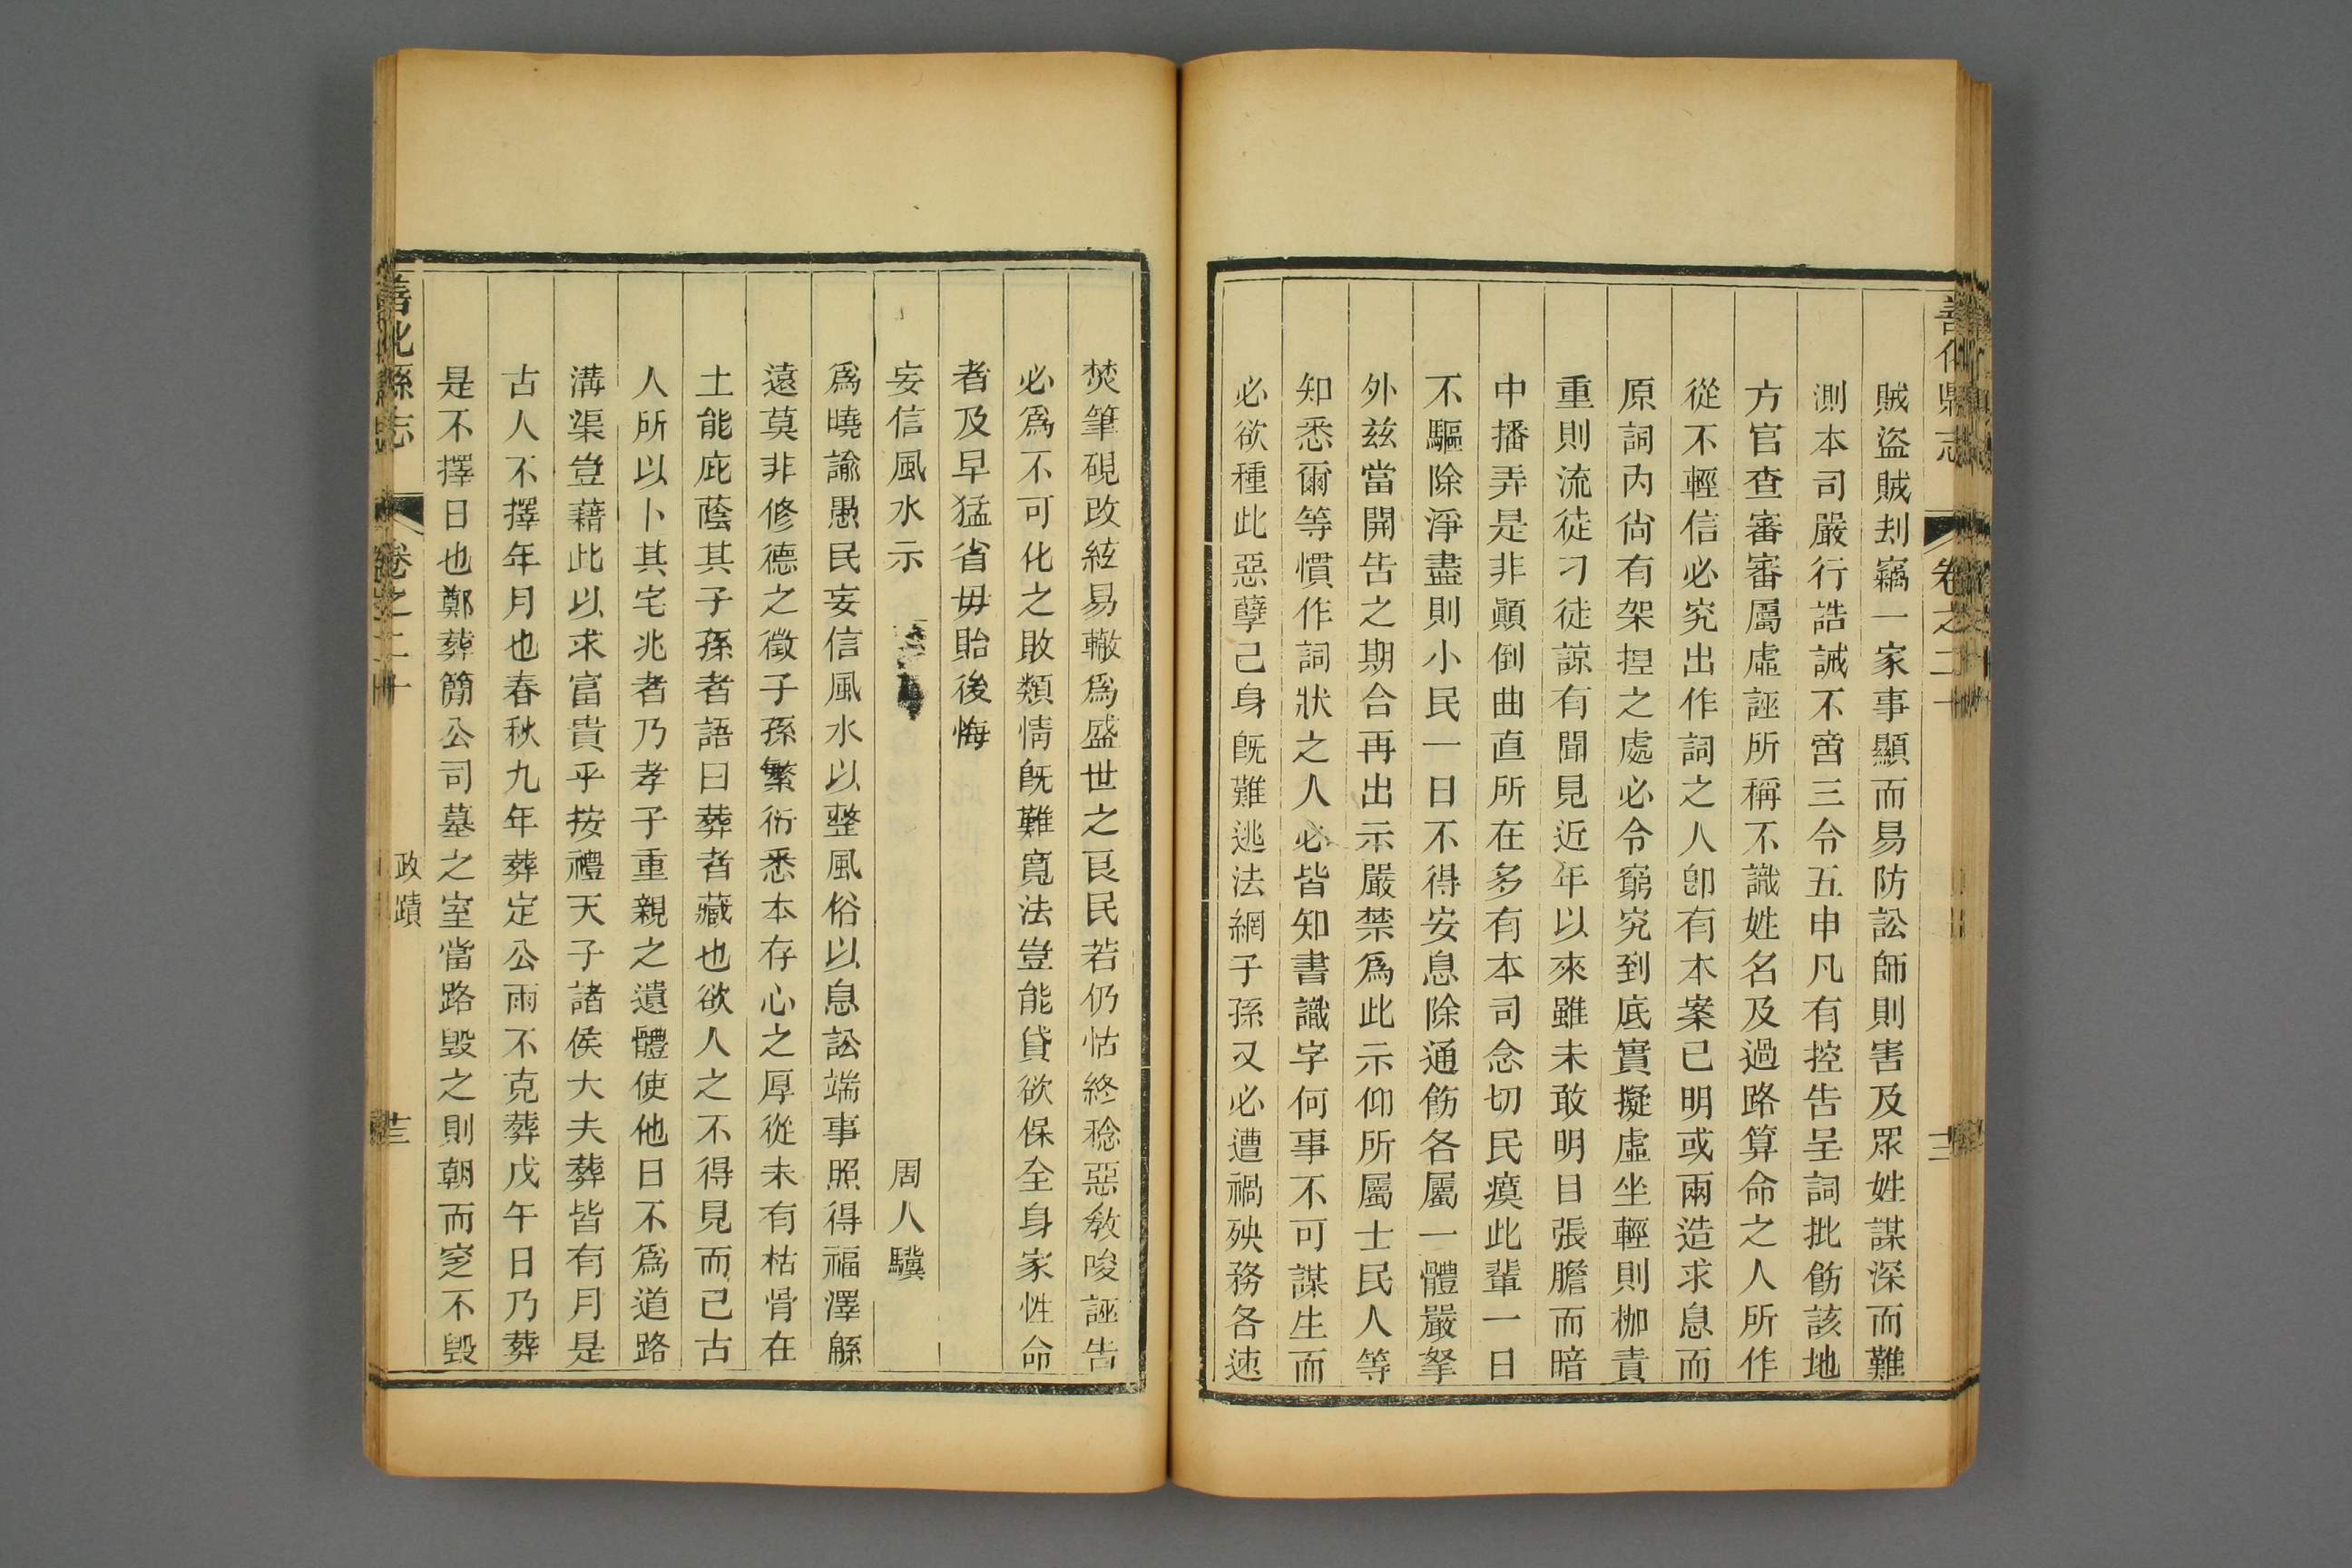 善化縣志
卷之二十
賊盜賊刦竊一家事顯而易防訟師則害及眾姓謀深而難
測本司嚴行誥誡不啻三令五申凡有控告呈詞批飭該地
方官查審審屬虛誣所稱不識姓名及過路算命之人所作
從不輕信必究出作詞之人卽有本案已明或兩造求息而
原詞內尙有架捏之處必令窮究到底實擬虛坐輕則枷責
重則流徒刁徒諒有聞見近年以來雖未敢明目張膽而暗
中播弄是非顚倒曲直所在多有本司念切民瘼此輩一日
不驅除淨盡則小民一日不得安息除通飭各屬一體嚴拏
外兹當開告之期合再出示嚴禁爲此示仰所屬士民人等
知悉爾等慣作詞狀之人必皆知書識字何事不可謀生而
必欲種此惡孽己身旣難逃法網子孫又必遭禍殃務各速
焚筆硯改絃易轍爲盛世之良民若仍怙終稔惡敎唆誣告
必爲不可化之敗類情旣難寬法豈能貸欲保全身家性命
者及早猛省毋貽後悔
妄信風水示
周人驥
爲曉諭愚民妄信風水以整風俗以息訟端事照得福澤緜
遠莫非修德之徵子孫繁衍悉本存心之厚從未有枯骨在
土能庇蔭其子孫者語曰葬者藏也欲人之不得見而已古
人所以卜其宅兆者乃孝子重親之遺體使他日不爲道路
溝渠豈藉此以求富貴乎按禮天子諸侯大夫葬皆有月是
古人不擇年月也春秋九年葬定公雨不克葬戊午日乃葬
是不擇日也鄭葬簡公司墓之室當路毀之則朝而窆不毀
善化縣志
卷之二十
政蹟